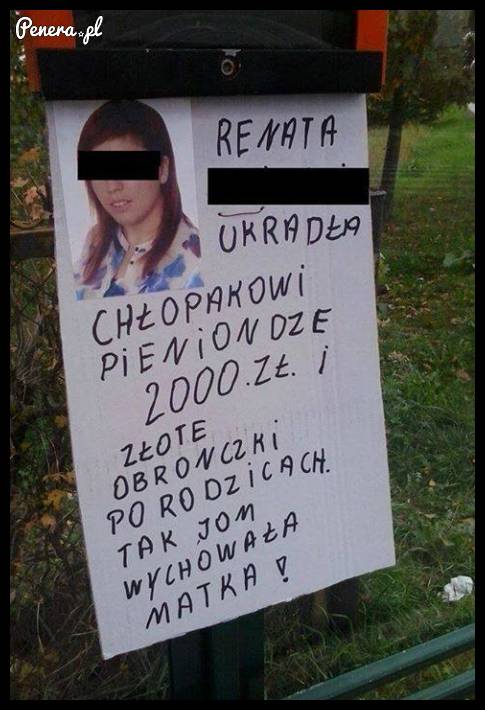 Penera.pl
RENATA
UKRADŁA
CHŁOPAKOWI
PIENIONDZE
2000.ZŁ. i
ZŁOTE
OBRONCZKI
PO RODZICACH.
TAK JOM
WYCHOWAŁA
MATKA!